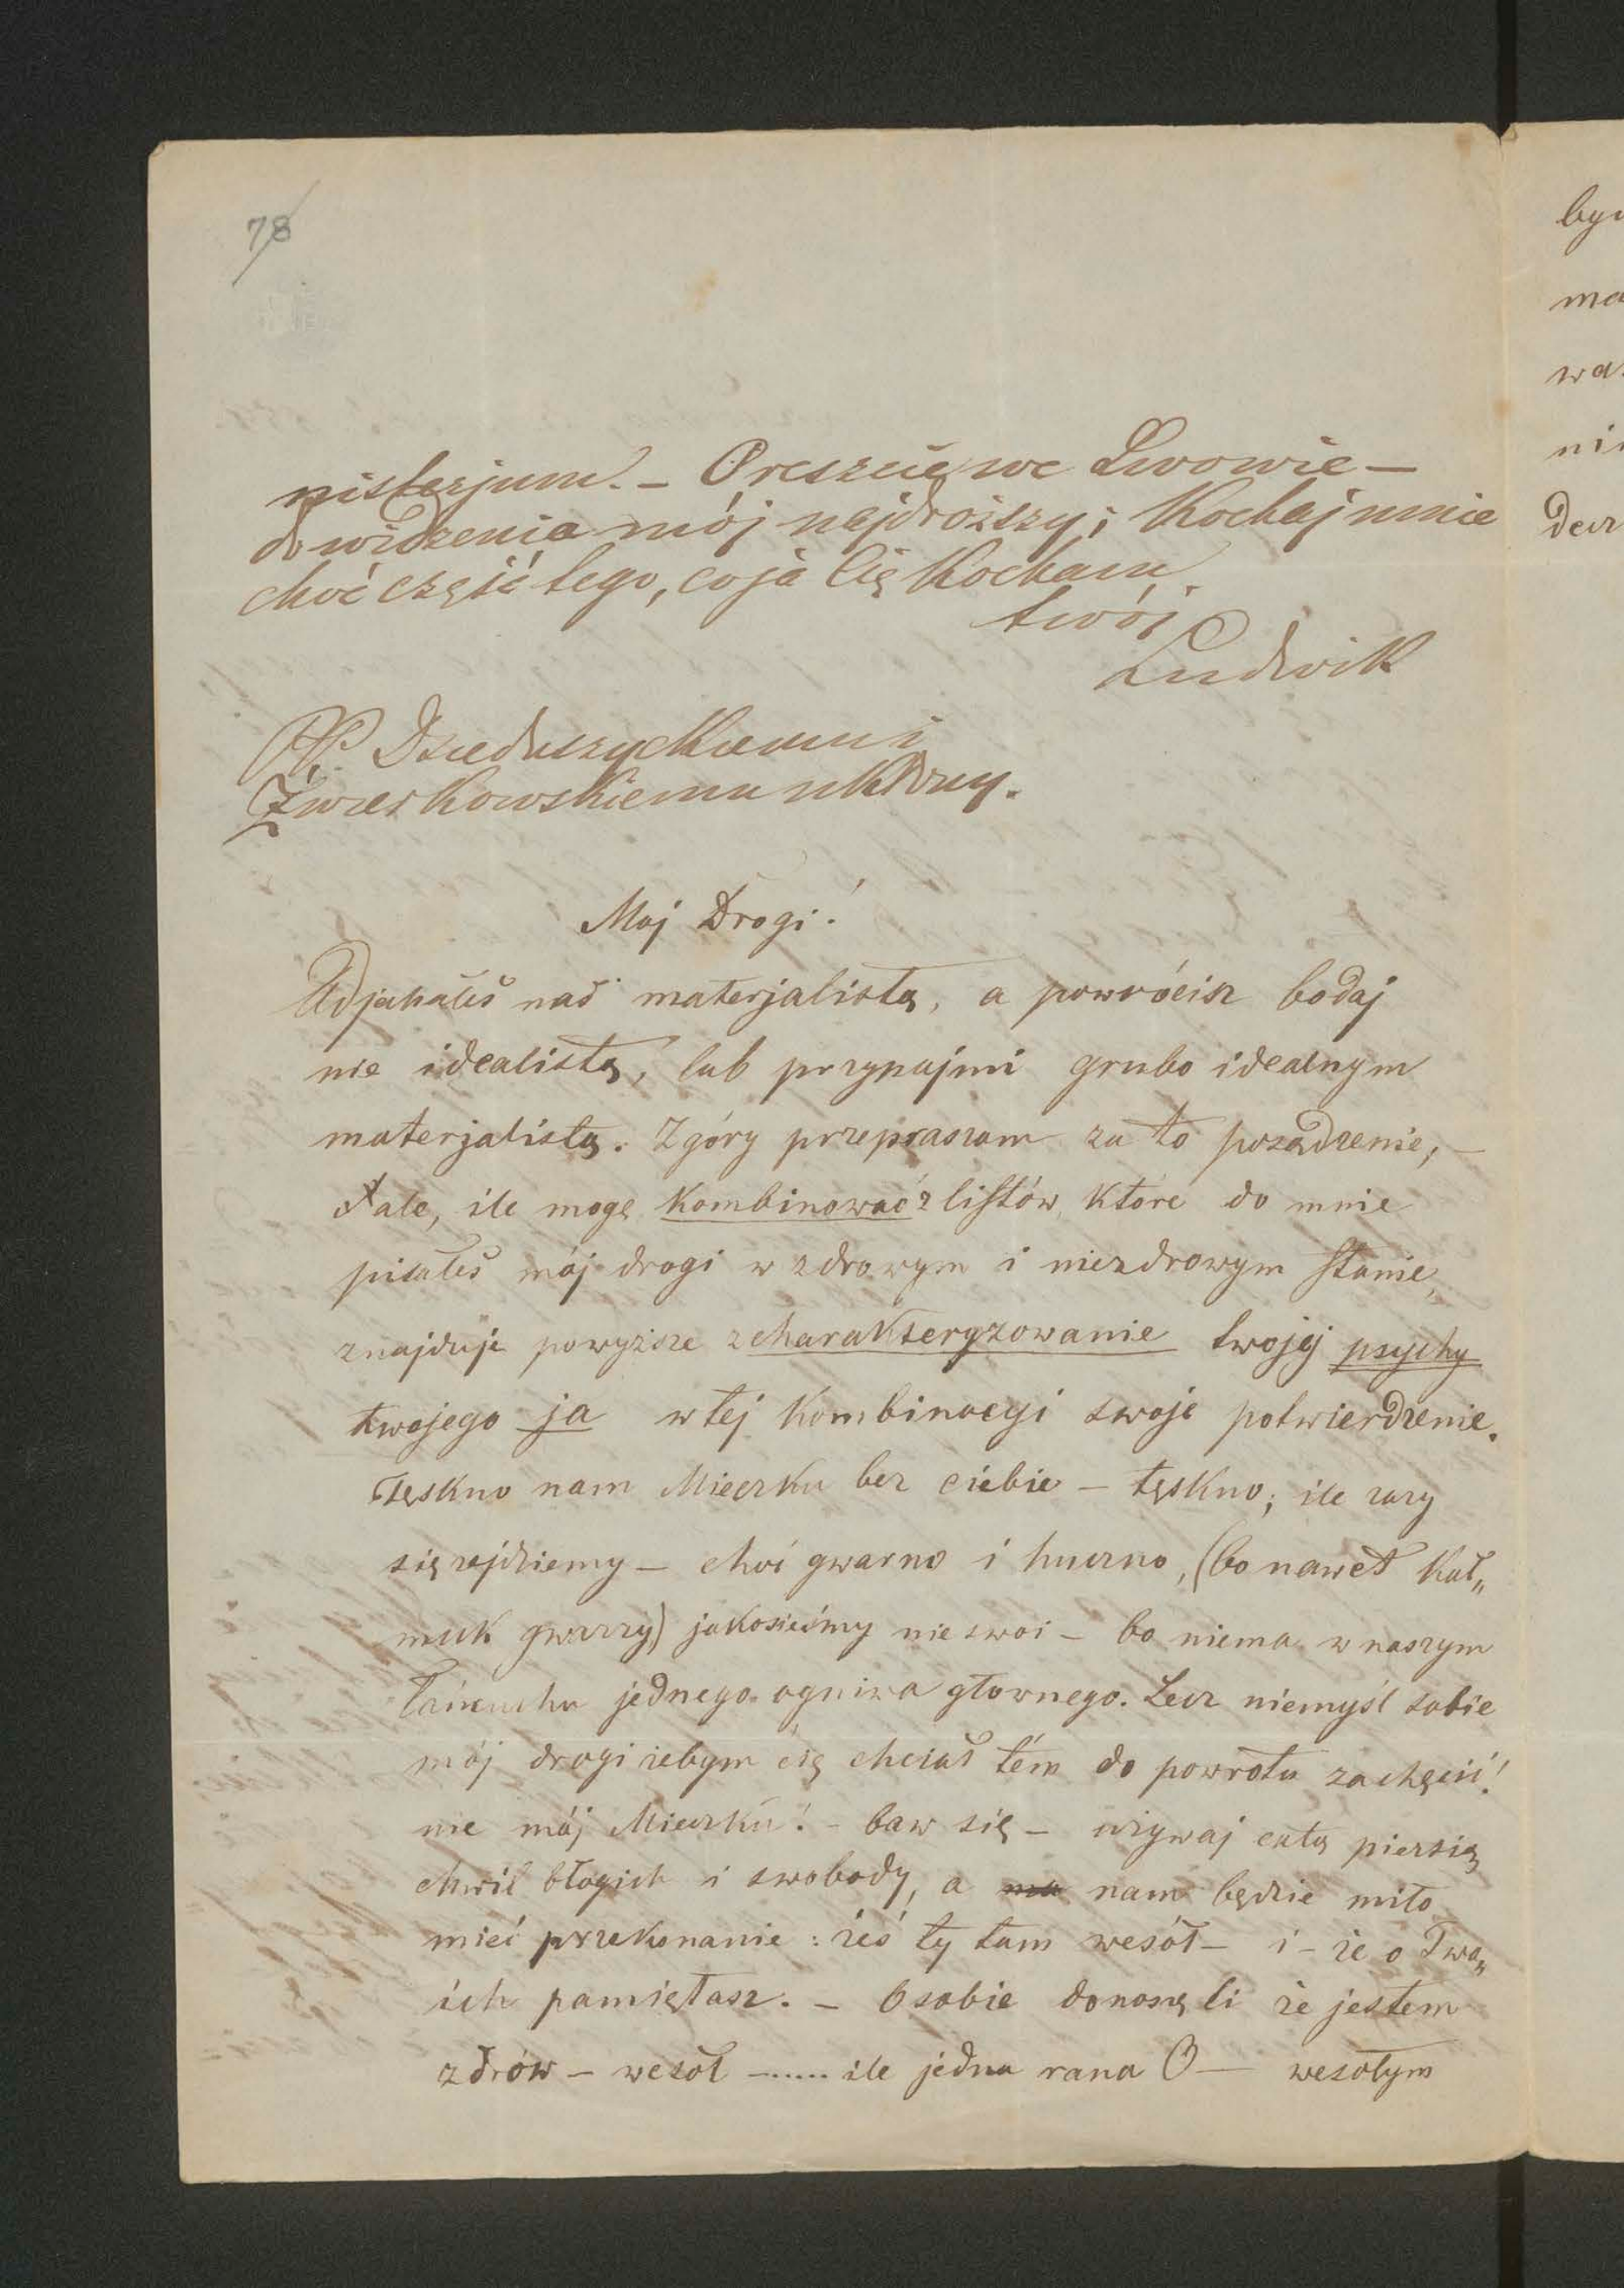 78
nisterjum. – Oreszcie we Lwowie –
do widzenia mój najdroższy; Kochaj mnie
choć część tego, co ja Cię Kocham.
twój
Ludwik
PP. Dzieduszyckiemu i
Żwierkowskiemu ukłony.
Moj Drogi!
Odjechałeś nas materjalistą, a powrócisz bodaj
nie idealistą, lub przynajmi grubo idealnym
materjalistą. Zgóry przepraszam za to posądzenie, –
ale, ile mogę Kombinować z listów, które do mnie
pisałeś mój drogi w zdrowym i niezdrowym stanie,
znajduje powyższe zcharakteryzowanie twojej psychy
twojego ja w tej Kombinacyi swoje potwierdzenie.
Tęskno nam Mieczku bez ciebie – tęskno; ile razy
się zejdziemy – choć gwarno i huczno, (bo nawet Kał„
muk gwarzy) jakosieśmy nie swoi – bo niema w naszym
łańcuchu jednego ogniwa głownego. Lecz niemyśl sobie
mój drogi żebym cię chciał tém do powrotu zachęcić!
nie mój Mieczku! – baw się – używaj całą piersią
chwil błogich i swobody, a nam będzie miło
mieć przekonanie: żeś ty tam wesół – i – że o Two„
ich pamiętasz. – O sobie donoszę li że jestem
zdrów – wesoł –...... ile jedna rana O – wesołym
byn
ma
wa
nin
decz